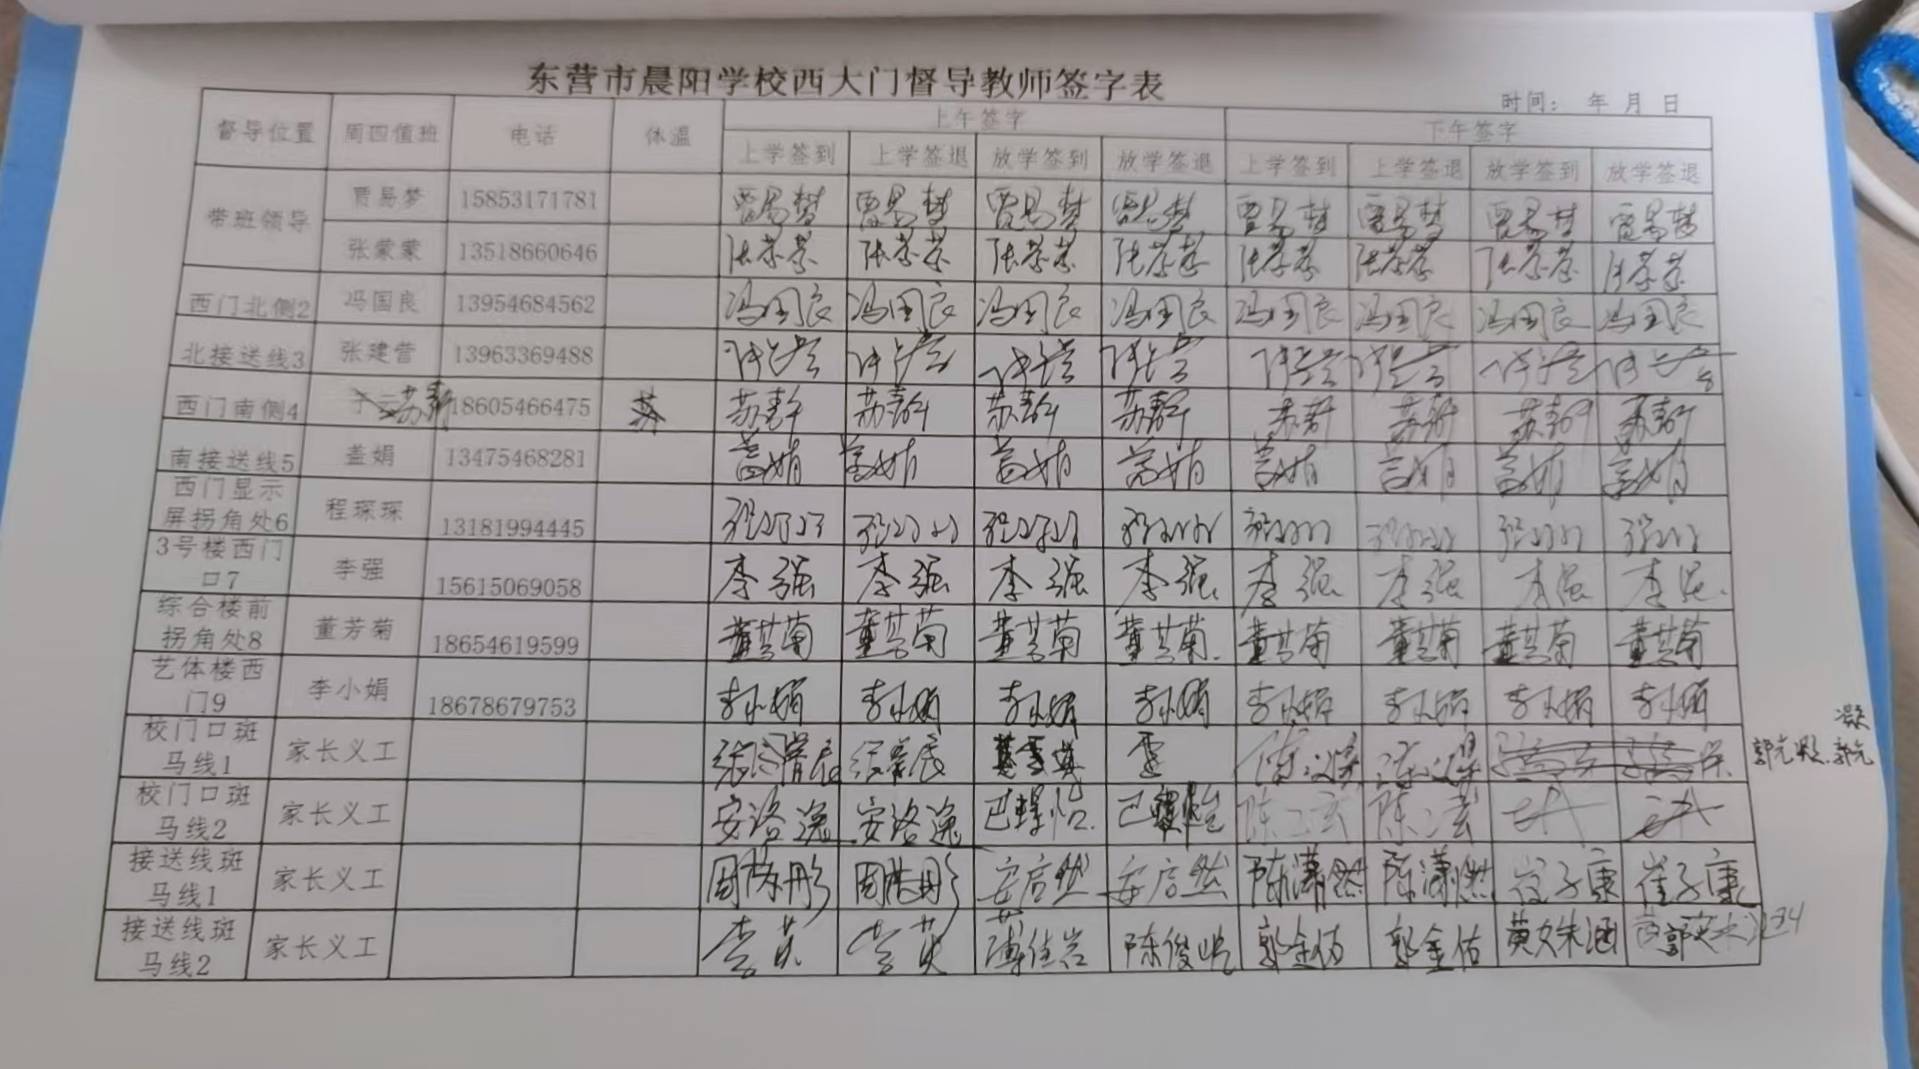 东营市晨阳学校西大门督导教师签字表
时间： 年 月 日
督导位置 周四值班 电话 体温 上午签字 下午签字
上学签到 上学签退 放学签到 放学签退 上学签到 上学签退 放学签到 放学签退
带班领导 贾易梦 15853171781 贾易梦 贾易梦 贾易梦 贾易梦 贾易梦 贾易梦 贾易梦 贾易梦
张蒙蒙 13518660646 张蒙蒙 张蒙蒙 张蒙蒙 张蒙蒙 张蒙蒙 张蒙蒙 张蒙蒙 张蒙蒙
西门北侧2 冯国良 13954684562 冯国良 冯国良 冯国良 冯国良 冯国良 冯国良 冯国良 冯国良
北接送线3 张建营 13963369488 张建营 张建营 张建营 张建营 张建营 张建营 张建营 张建营
西门南侧4 苏静 18605466475 苏 苏静 苏静 苏静 苏静 苏静 苏静 苏静 苏静
南接送线5 盖娟 13475468281 盖娟 盖娟 盖娟 盖娟 盖娟 盖娟 盖娟 盖娟
西门显示屏拐角处6 程琛琛 13181994445 程琛琛 程琛琛 程琛琛 程琛琛 程琛琛 程琛琛 程琛琛 程琛琛
3号楼西门口7 李强 15615069058 李强 李强 李强 李强 李强 李强 李强 李强
综合楼前拐角处8 董芳菊 18654619599 董芳菊 董芳菊 董芳菊 董芳菊 董芳菊 董芳菊 董芳菊 董芳菊
艺体楼西门9 李小娟 18678679753 李小娟 李小娟 李小娟 李小娟 李小娟 李小娟 李小娟 李小娟
校门口斑马线1 家长义工
校门口斑马线2 家长义工 安洛逸 安洛逸
接送线斑马线1 家长义工 安启然 安启然 陈潇然 陈潇然 崔子康 崔子康
接送线斑马线2 家长义工 李英 李英 陈俊屹 郭金佑 郭金佑 黄文朱涵